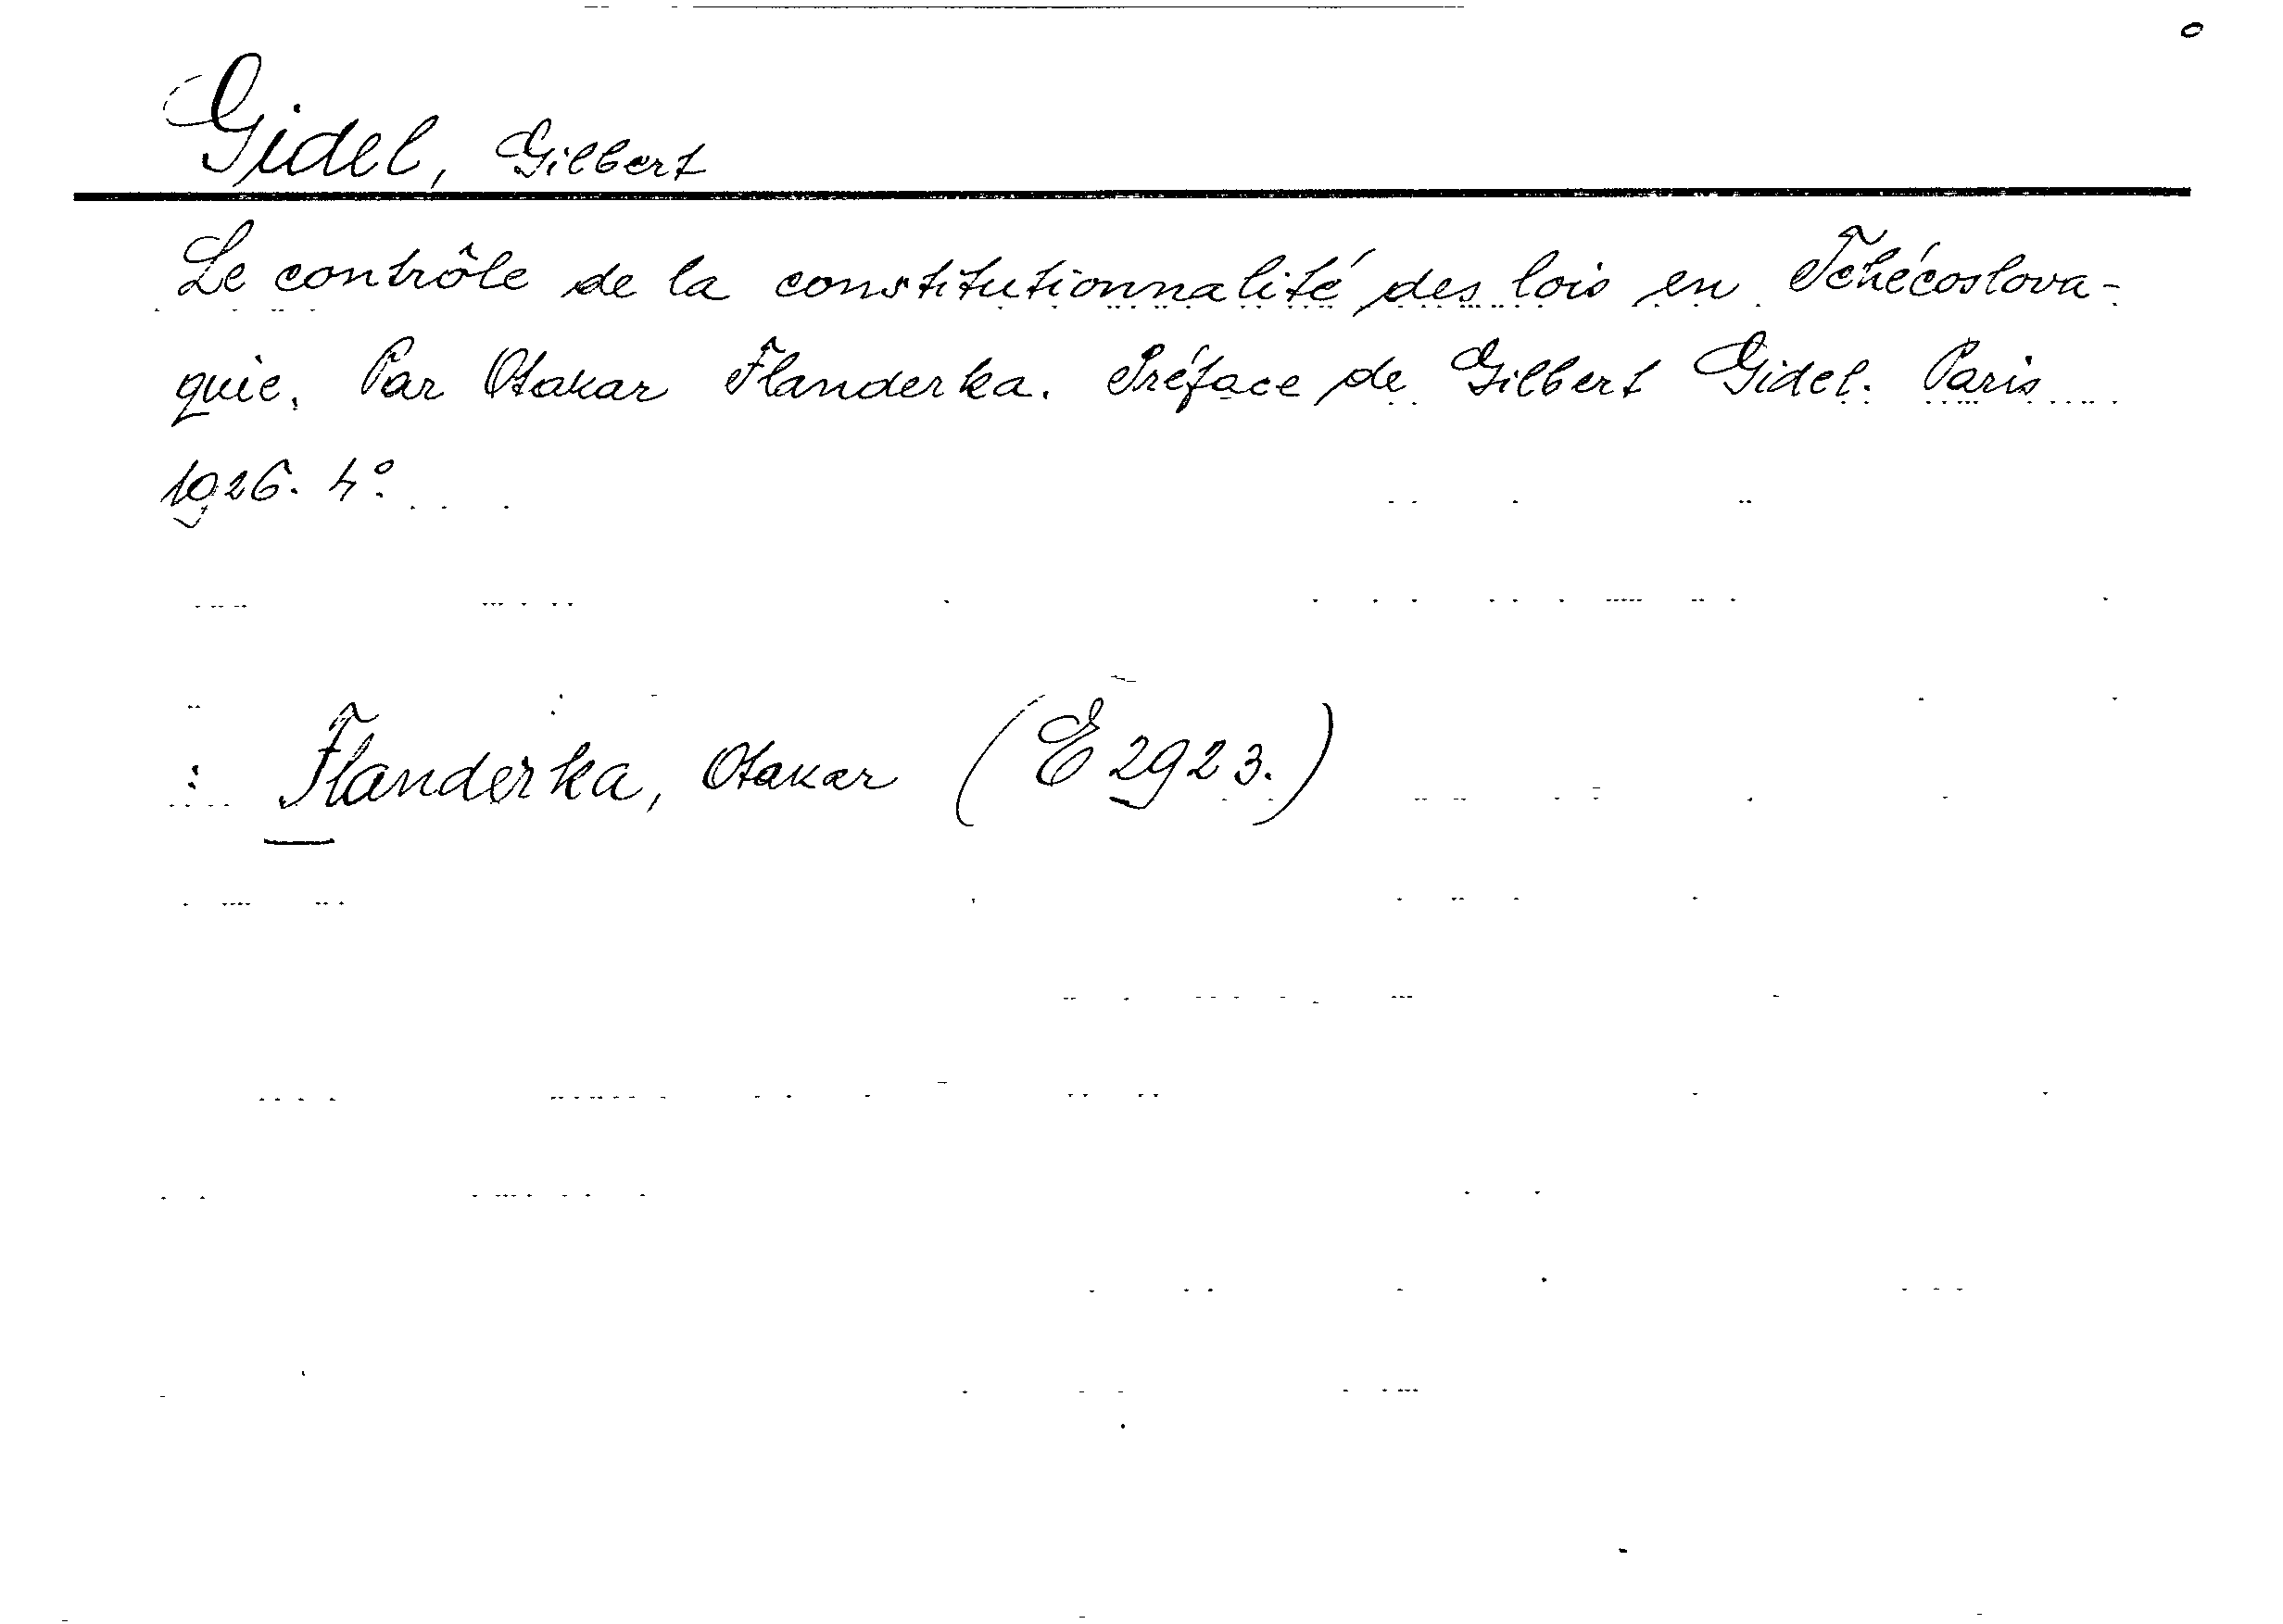 Gidel, Gilbert
Le contrôle de la constitutionnalité des lois en Tchécoslova-
quie. Par Otakar Flanderka. Préface de Gilbert Gidel. Paris
1926. 4°.
: Flanderka, Otakar (E 2923.)